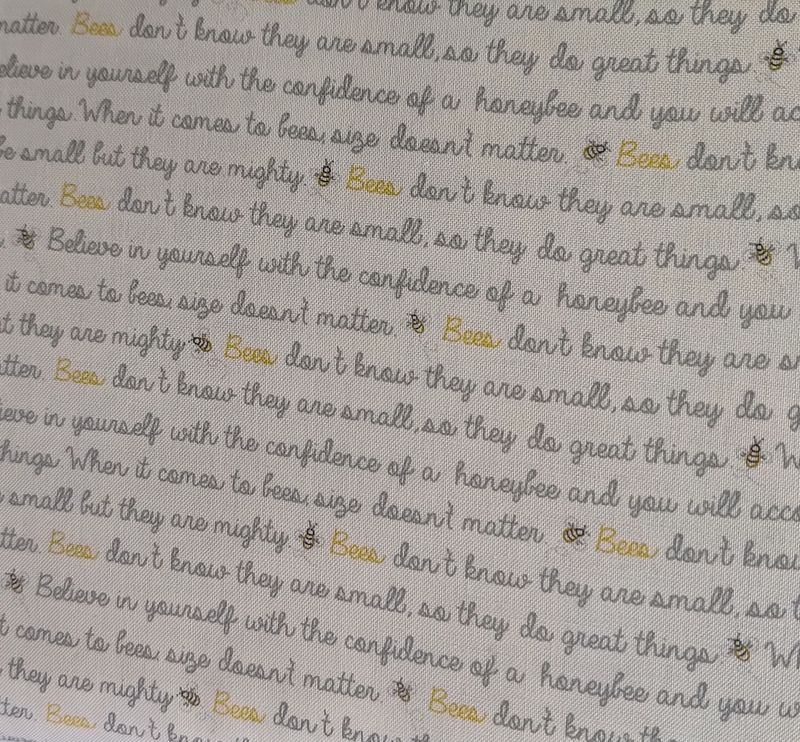 don't know they are small, so they do
matter. Bees don't know they are small, so they do great things.
believe in yourself with the confidence of a honeybee and you will
things. When it comes to bees, size doesn't matter. Bees don't
small but they are mighty. Bees don't know they are small, so
matter. Bees don't know they are small, so they do great things.
Believe in yourself with the confidence of a honeybee and you
it comes to bees, size doesn't matter. Bees don't know they are
they are mighty. Bees don't know they are small, so they do
Bees don't know they are small, so they do great things.
in yourself with the confidence of a honeybee and you will
things. When it comes to bees, size doesn't matter. Bees don't
small but they are mighty. Bees don't know they are small, so
Bees don't know they are small, so they do great things.
Believe in yourself with the confidence of a honeybee and you
comes to bees, size doesn't matter. Bees don't know
they are mighty. Bees don't
Bees don't